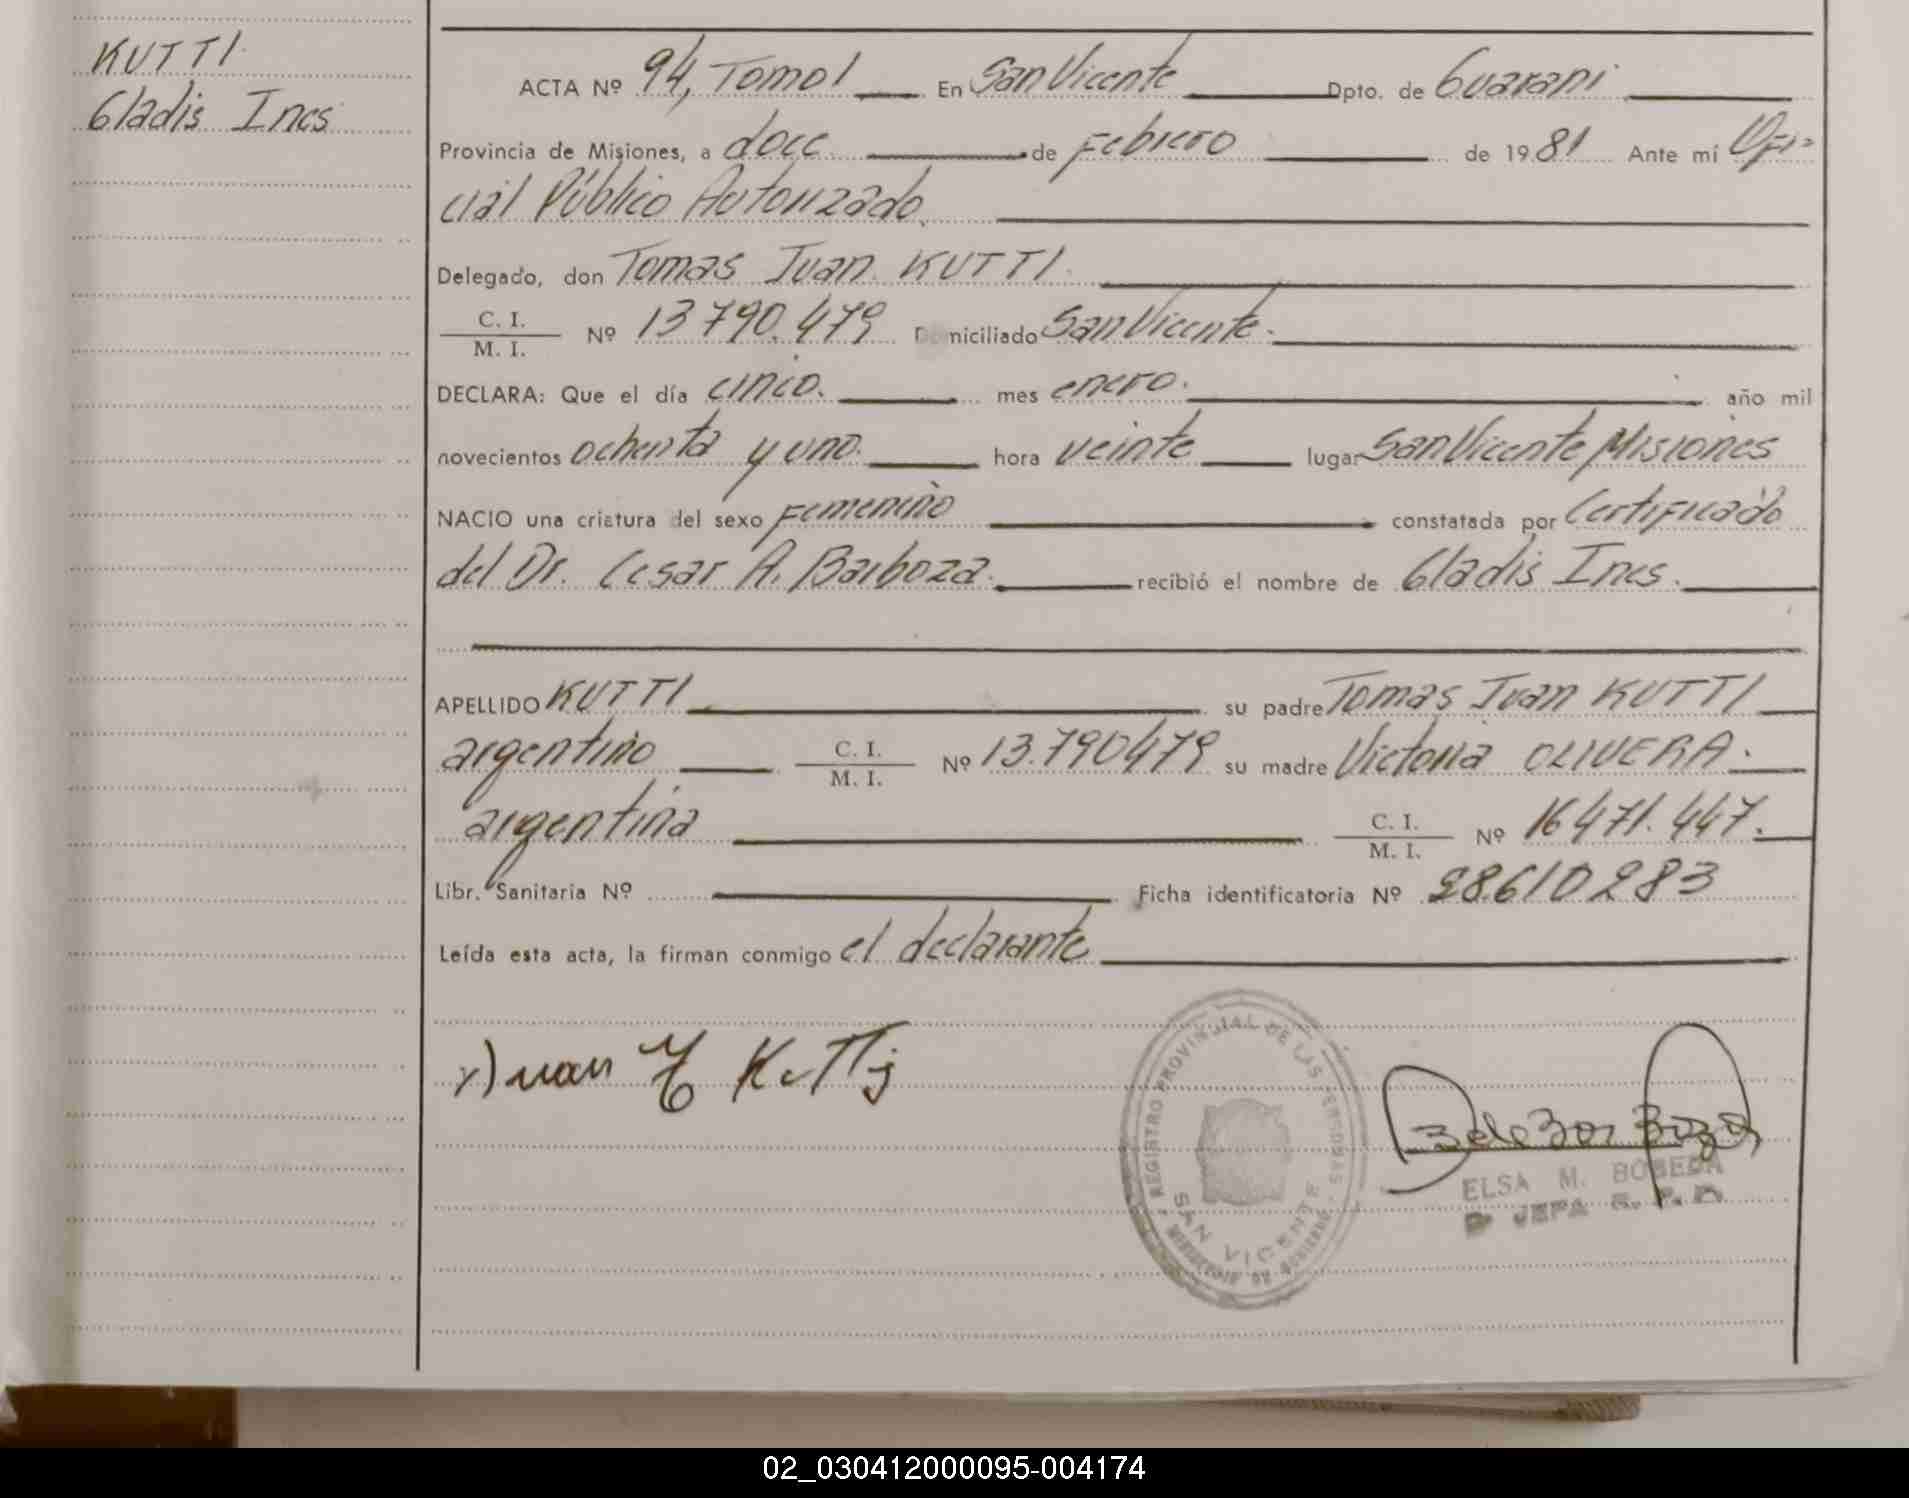 KUTTI
Gladis Ines
ACTA Nº 94, Tomo I En San Vicente Dpto. de Guarani
Provincia de Misiones, a doce de Febrero de 1981 Ante mí Ofi-
cial Público Autorizado.
Delegado, don Tomas Juan KUTTI.
C. I.
M. I. Nº 13790.479 Domiciliado San Vicente.
DECLARA: Que el día cinco. mes enero. año mil
novecientos ochenta y uno. hora veinte lugar San Vicente Misiones
NACIO una criatura del sexo Femenino constatada por Certificado
del Dr. Cesar A. Barboza. recibió el nombre de Gladis Ines.
APELLIDO KUTTI su padre Tomas Juan KUTTI
argentino C. I. M. I. Nº 13.790479 su madre Victoria OLIVERA.
argentina C. I. M. I. Nº 16471.447.
Libr. Sanitaria Nº Ficha identificatoria Nº 28610283
Leída esta acta, la firman conmigo el declarante
Juan Kutti
REGISTRO PROVINCIAL DE LAS PERSONAS
SAN VICENTE
ELSA M. BOBEDA
JEFA
02_030412000095-004174